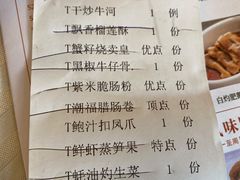 T干炒牛河 1 例
T飘香榴莲酥 1 份
T蟹籽烧卖皇 优点 份
T黑椒牛仔骨. 1 份
T紫米脆肠粉 优点 份
T潮福腊肠卷 顶点 份
T鲍汁扣凤爪 1 份
T鲜虾蒸笋果 特点 份
T蚝油灼生菜 1 份
白灼肥
味